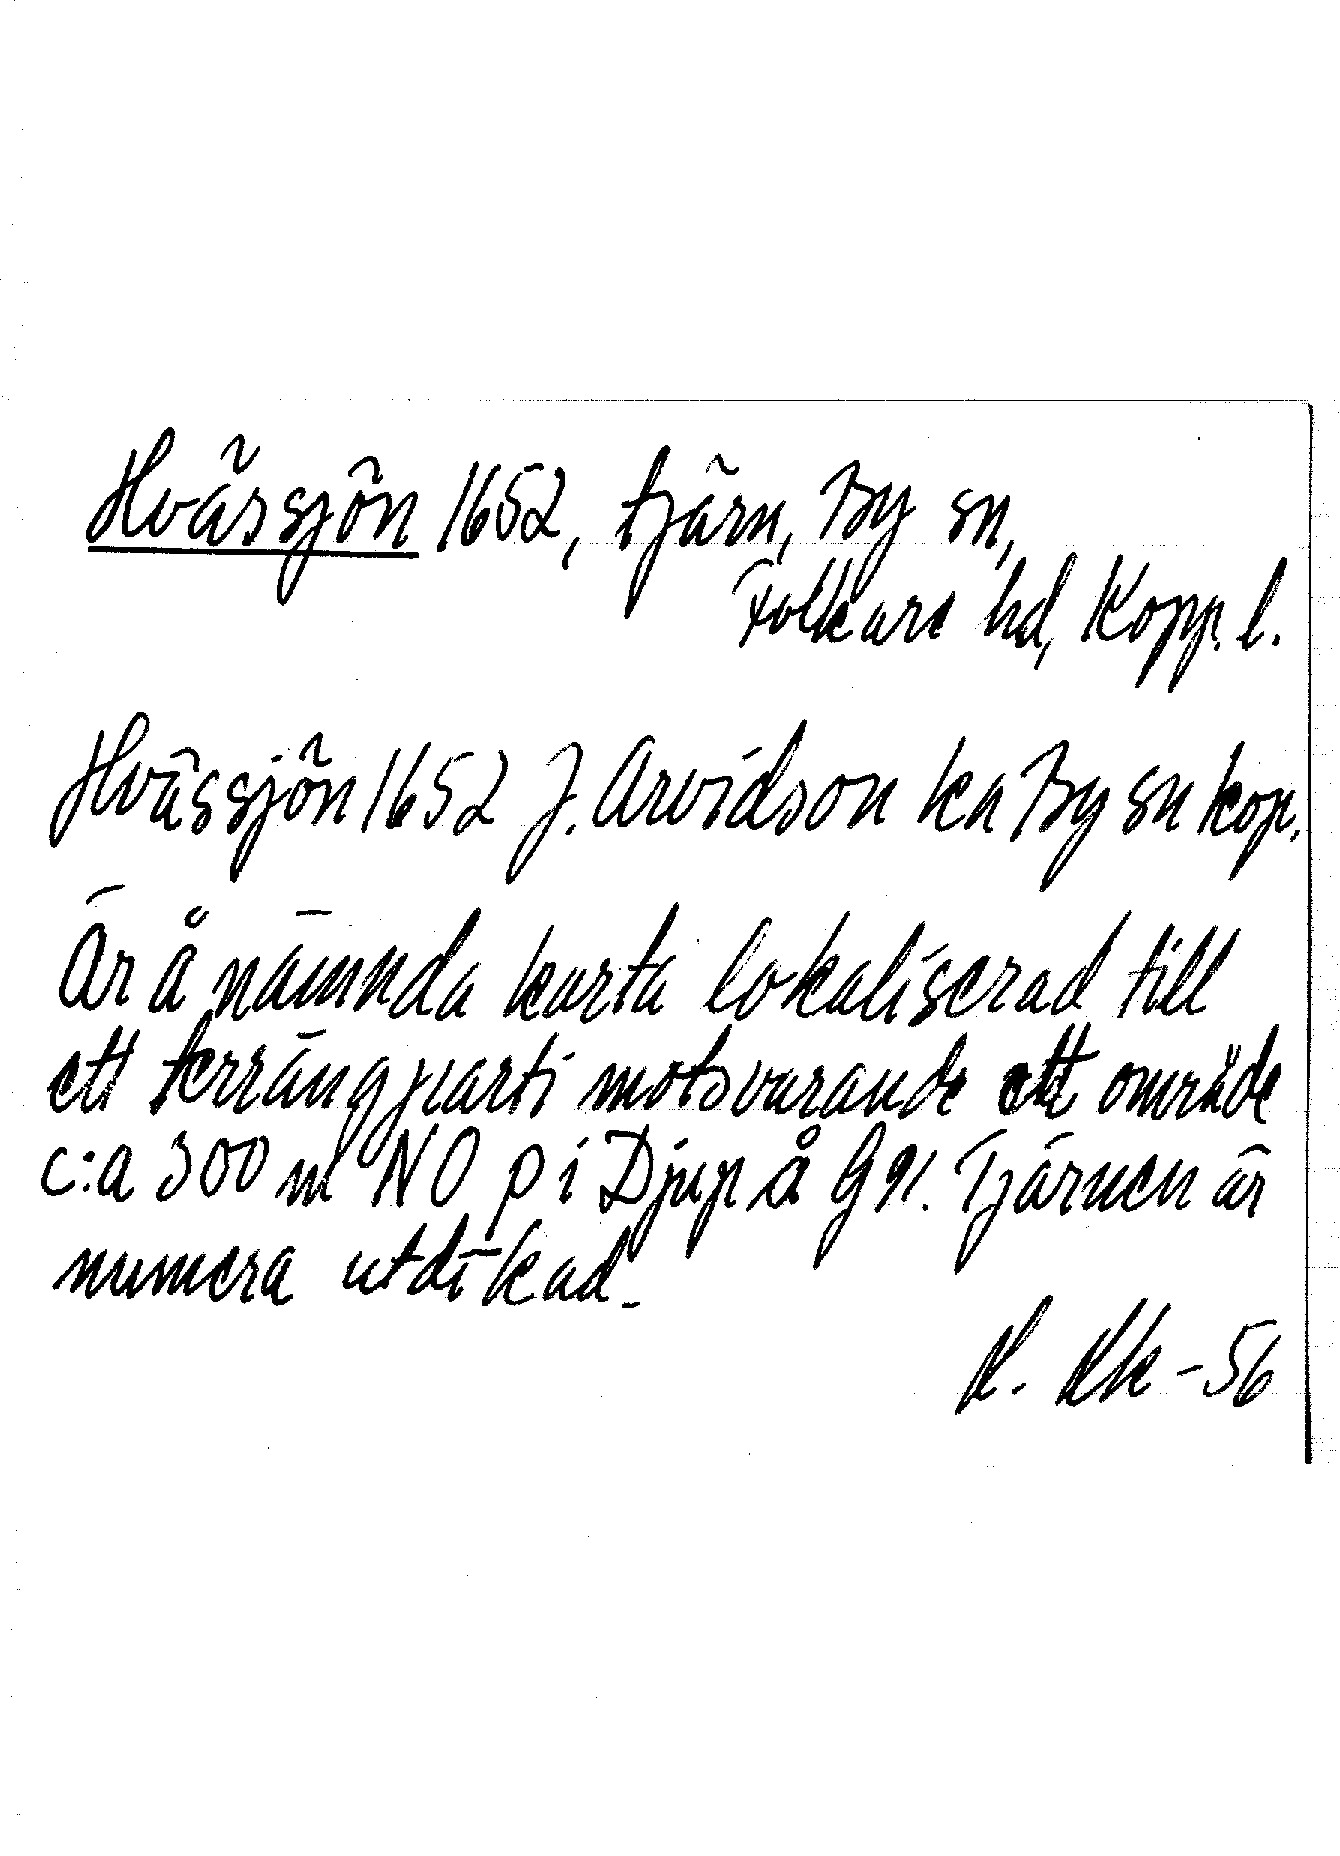 Hvässjön 1652, tjärn, By sn,
Folkare hd, Kopp. l.
Hvässjön 1652 J. Arvidson ka By sn kop.
Är å nämnda karta lokaliserad till
ett terrängparti motsvarande ett område
c:a 300 m NO p i Djup å G 91. Tjärnen är
numera utdikad.
K. Kk - 56